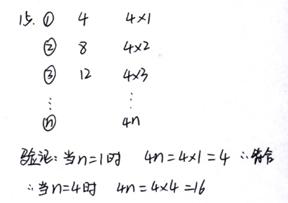 15. ① 4 4×1
② 8 4×2
③ 12 4×3
⋮ ⋮
ⓝ 4n
验证: 当n=1时 4n=4×1=4 ∴符合
∴当n=4时 4n=4×4=16